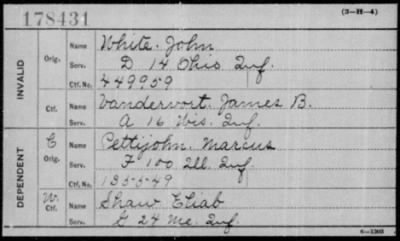 178431
(3-H-4)
INVALID
Orig.
Name White. John
Serv. D 14 Ohio Inf.
Ctf. No. 449959
Ctf.
Name Vandervort. James B.
Serv. A 16 Wis. Inf.
DEPENDENT
C
Orig.
Name Pettijohn. Marcus
Serv. F 100 Ill. Inf.
Ctf. No. 135549
W.
Ctf.
Name Shaw Eliab
Serv. G 24 Me. Inf.